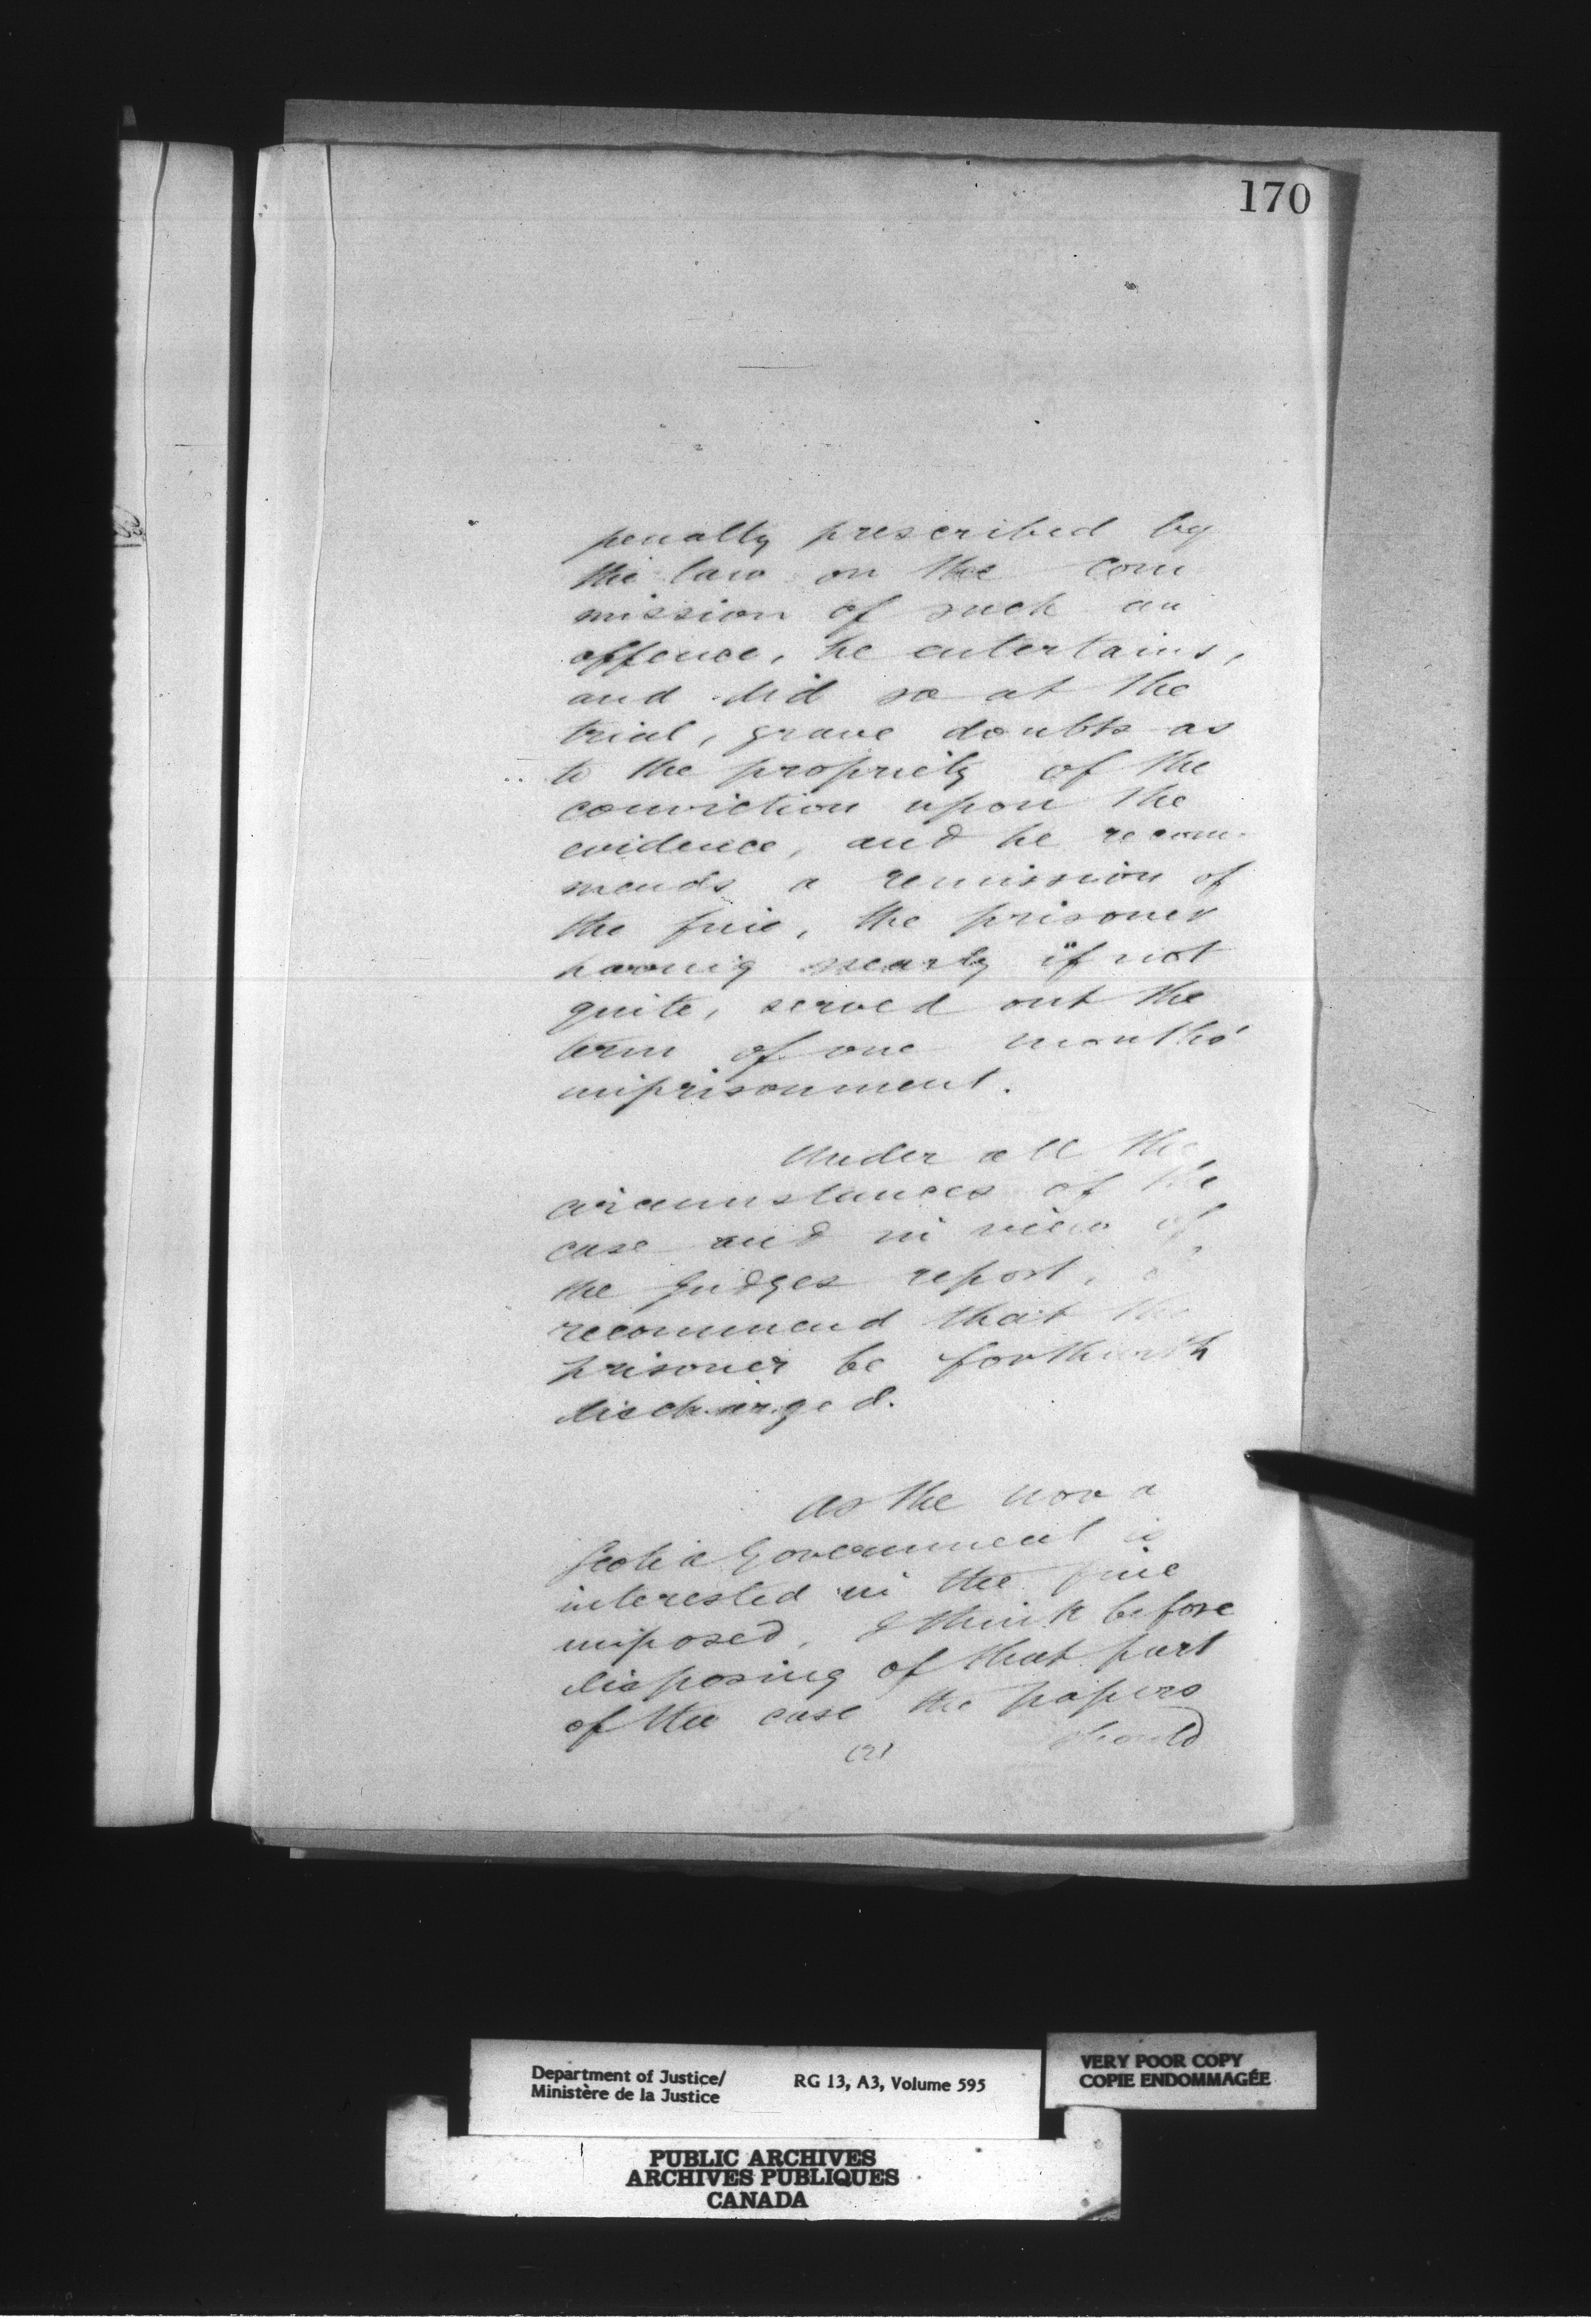 170
penalty prescribed by
the law on the com
mission of such an
offence, he entertains,
and did so at the
trial, grave doubts as
to the propriety of the
conviction upon the
evidence, and he recom-
mends a remission of
the fine, the prisoner
having nearly if not
quite, served out the
term of one months'
imprisonment.
Under all the
circumstances of the
case and in view of
the Judges report, I
recommend that the
prisoner be forthwith
discharged.
As the Nova
Scotia Government is
interested in the fine
imposed, I think before
disposing of that part
of the case the papers
(2) should
Department of Justice/ RG 13, A3, Volume 595
Ministère de la Justice
VERY POOR COPY
COPIE ENDOMMAGÉE
PUBLIC ARCHIVES
ARCHIVES PUBLIQUES
CANADA